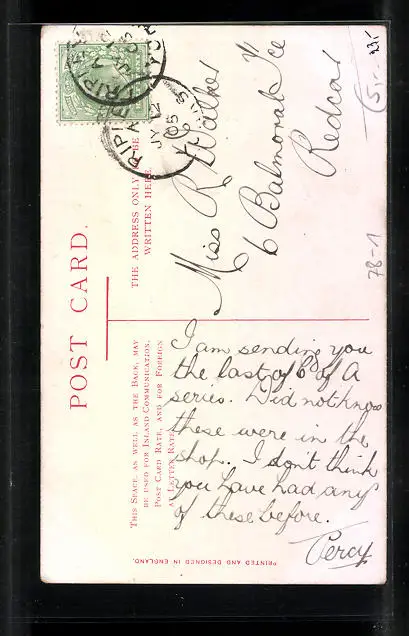 POST CARD.
THE ADDRESS ONLY TO BE
WRITTEN HERE.
THIS SPACE, AS WELL AS THE BACK, MAY
BE USED FOR INLAND COMMUNICATION,
POST CARD RATE, AND FOR FOREIGN
LETTER RATE.
RIPLEY
JY 12
05
Miss R Walker
6 Balmoral Tce
Redcar
78-1
I am sending you
the last of 6 of A
series. Did not know
these were in the
shop. I don't think
you have had any
of these before.
Percy
PRINTED AND DESIGNED IN ENGLAND.